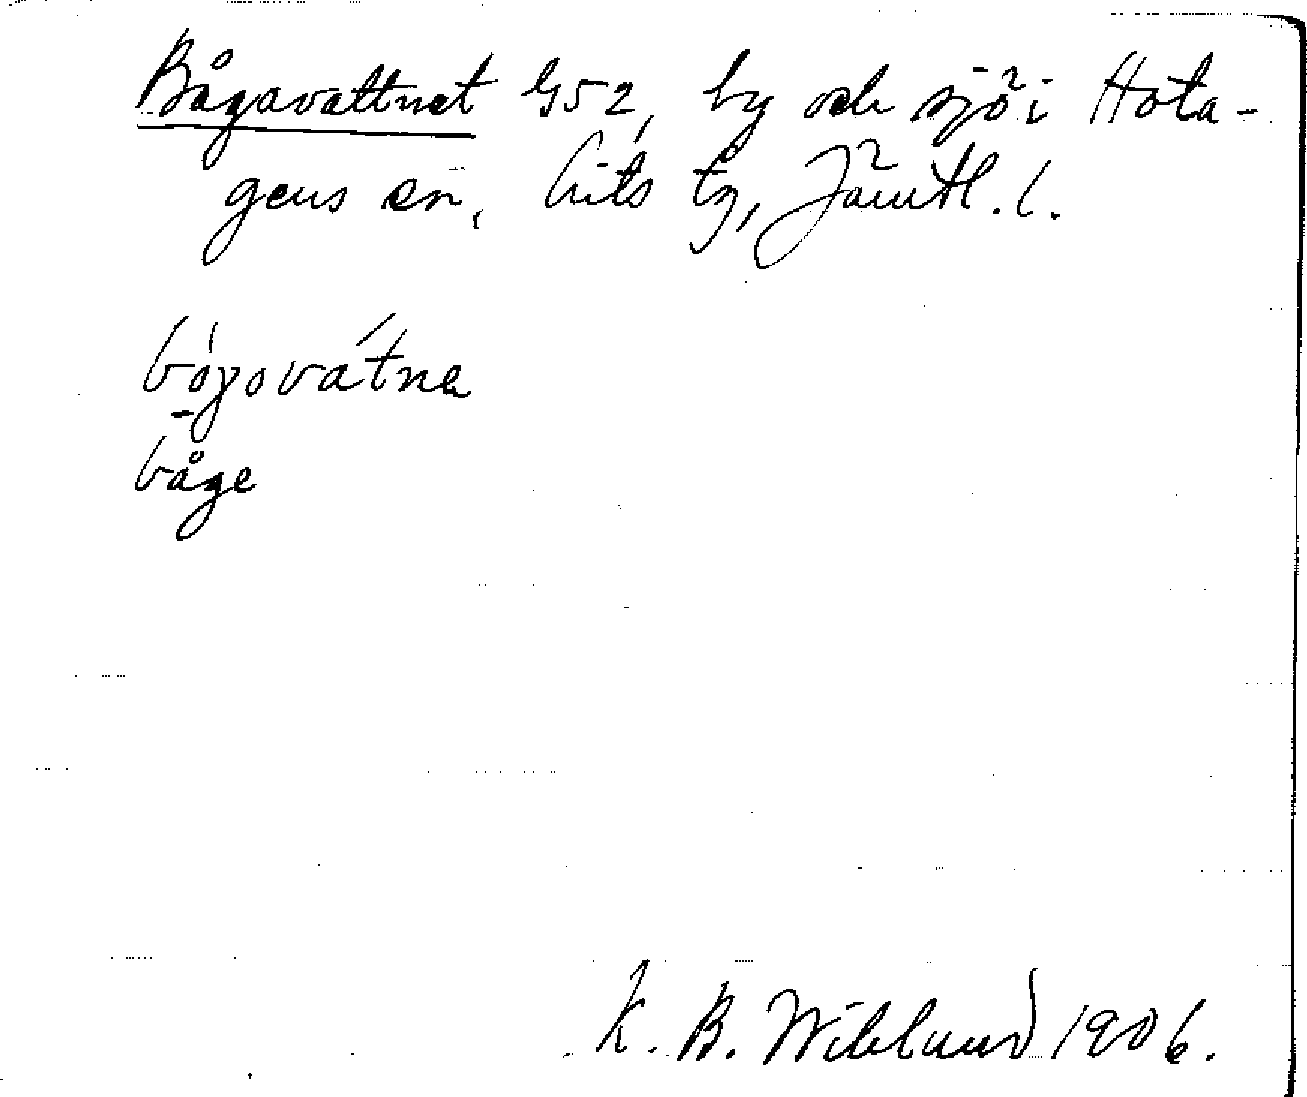 Bågavattnet G52, by och sjö i Hota-
gens sn, Lits tg, Jämtl. l.
bóγovátna
båge
K. B. Wiklund 1906.